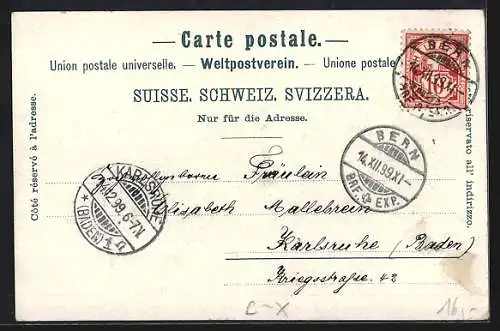 — Carte postale. —
Union postale universelle. — Weltpostverein. — Unione postale
SUISSE. SCHWEIZ. SVIZZERA.
Nur für die Adresse.
Côté réservé à l'adresse.
riservato all' indirizzo.
BERN
10
BERN
14.XII.99.XI-
BRF. EXP.
KARLSRUHE
12.99.6-7N
* (BADEN) 1
Fräulein
Elisabeth Mallebrein
Karlsruhe (Baden)
Kriegsstraße. 42
C-X